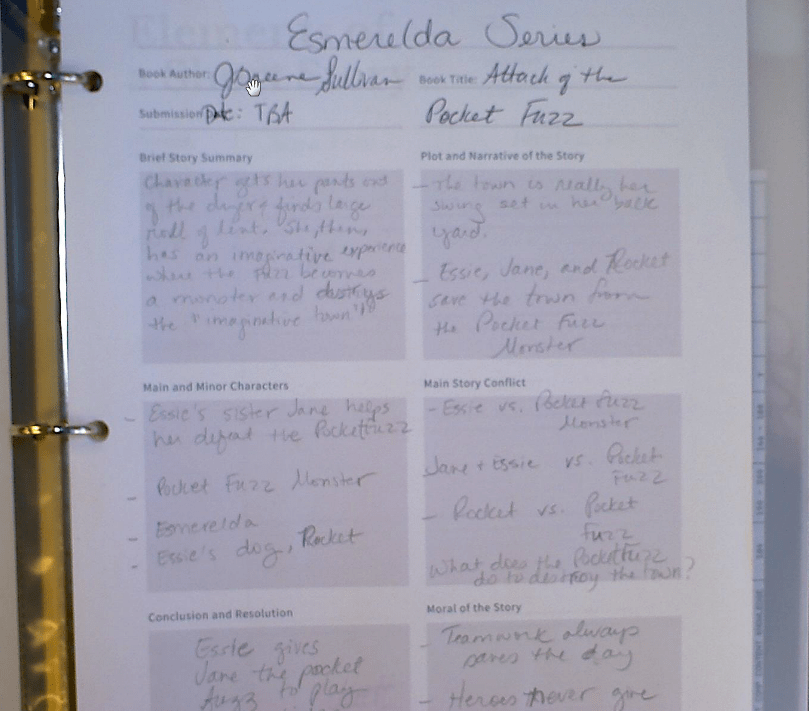 Esmerelda Series
Book Author: Jogeene Sullivan
Book Title: Attack of the
Pocket Fuzz
Submission Date: TBA
Brief Story Summary
Character gets her pants out
of the dryer & finds large
roll of lint. She, then,
has an imaginative experience
where the fuzz becomes
a monster and destroys
the "imaginative town"
Plot and Narrative of the Story
- The town is really her
swing set in her back
yard.
- Essie, Jane, and Rocket
save the town from
the Pocket Fuzz
Monster
Main and Minor Characters
- Essie's sister Jane helps
her defeat the Pocketfuzz
- Pocket Fuzz Monster
- Esmerelda
- Essie's dog, Rocket
Main Story Conflict
- Essie vs. Pocket fuzz
Monster
Jane + Essie vs. Pocket
Fuzz
- Rocket vs. Pocket
fuzz
What does the Pocketfuzz
do to destroy the town?
Conclusion and Resolution
Essie gives
Jane the pocket
to play
Moral of the Story
- Teamwork always
saves the day
- Heroes never give